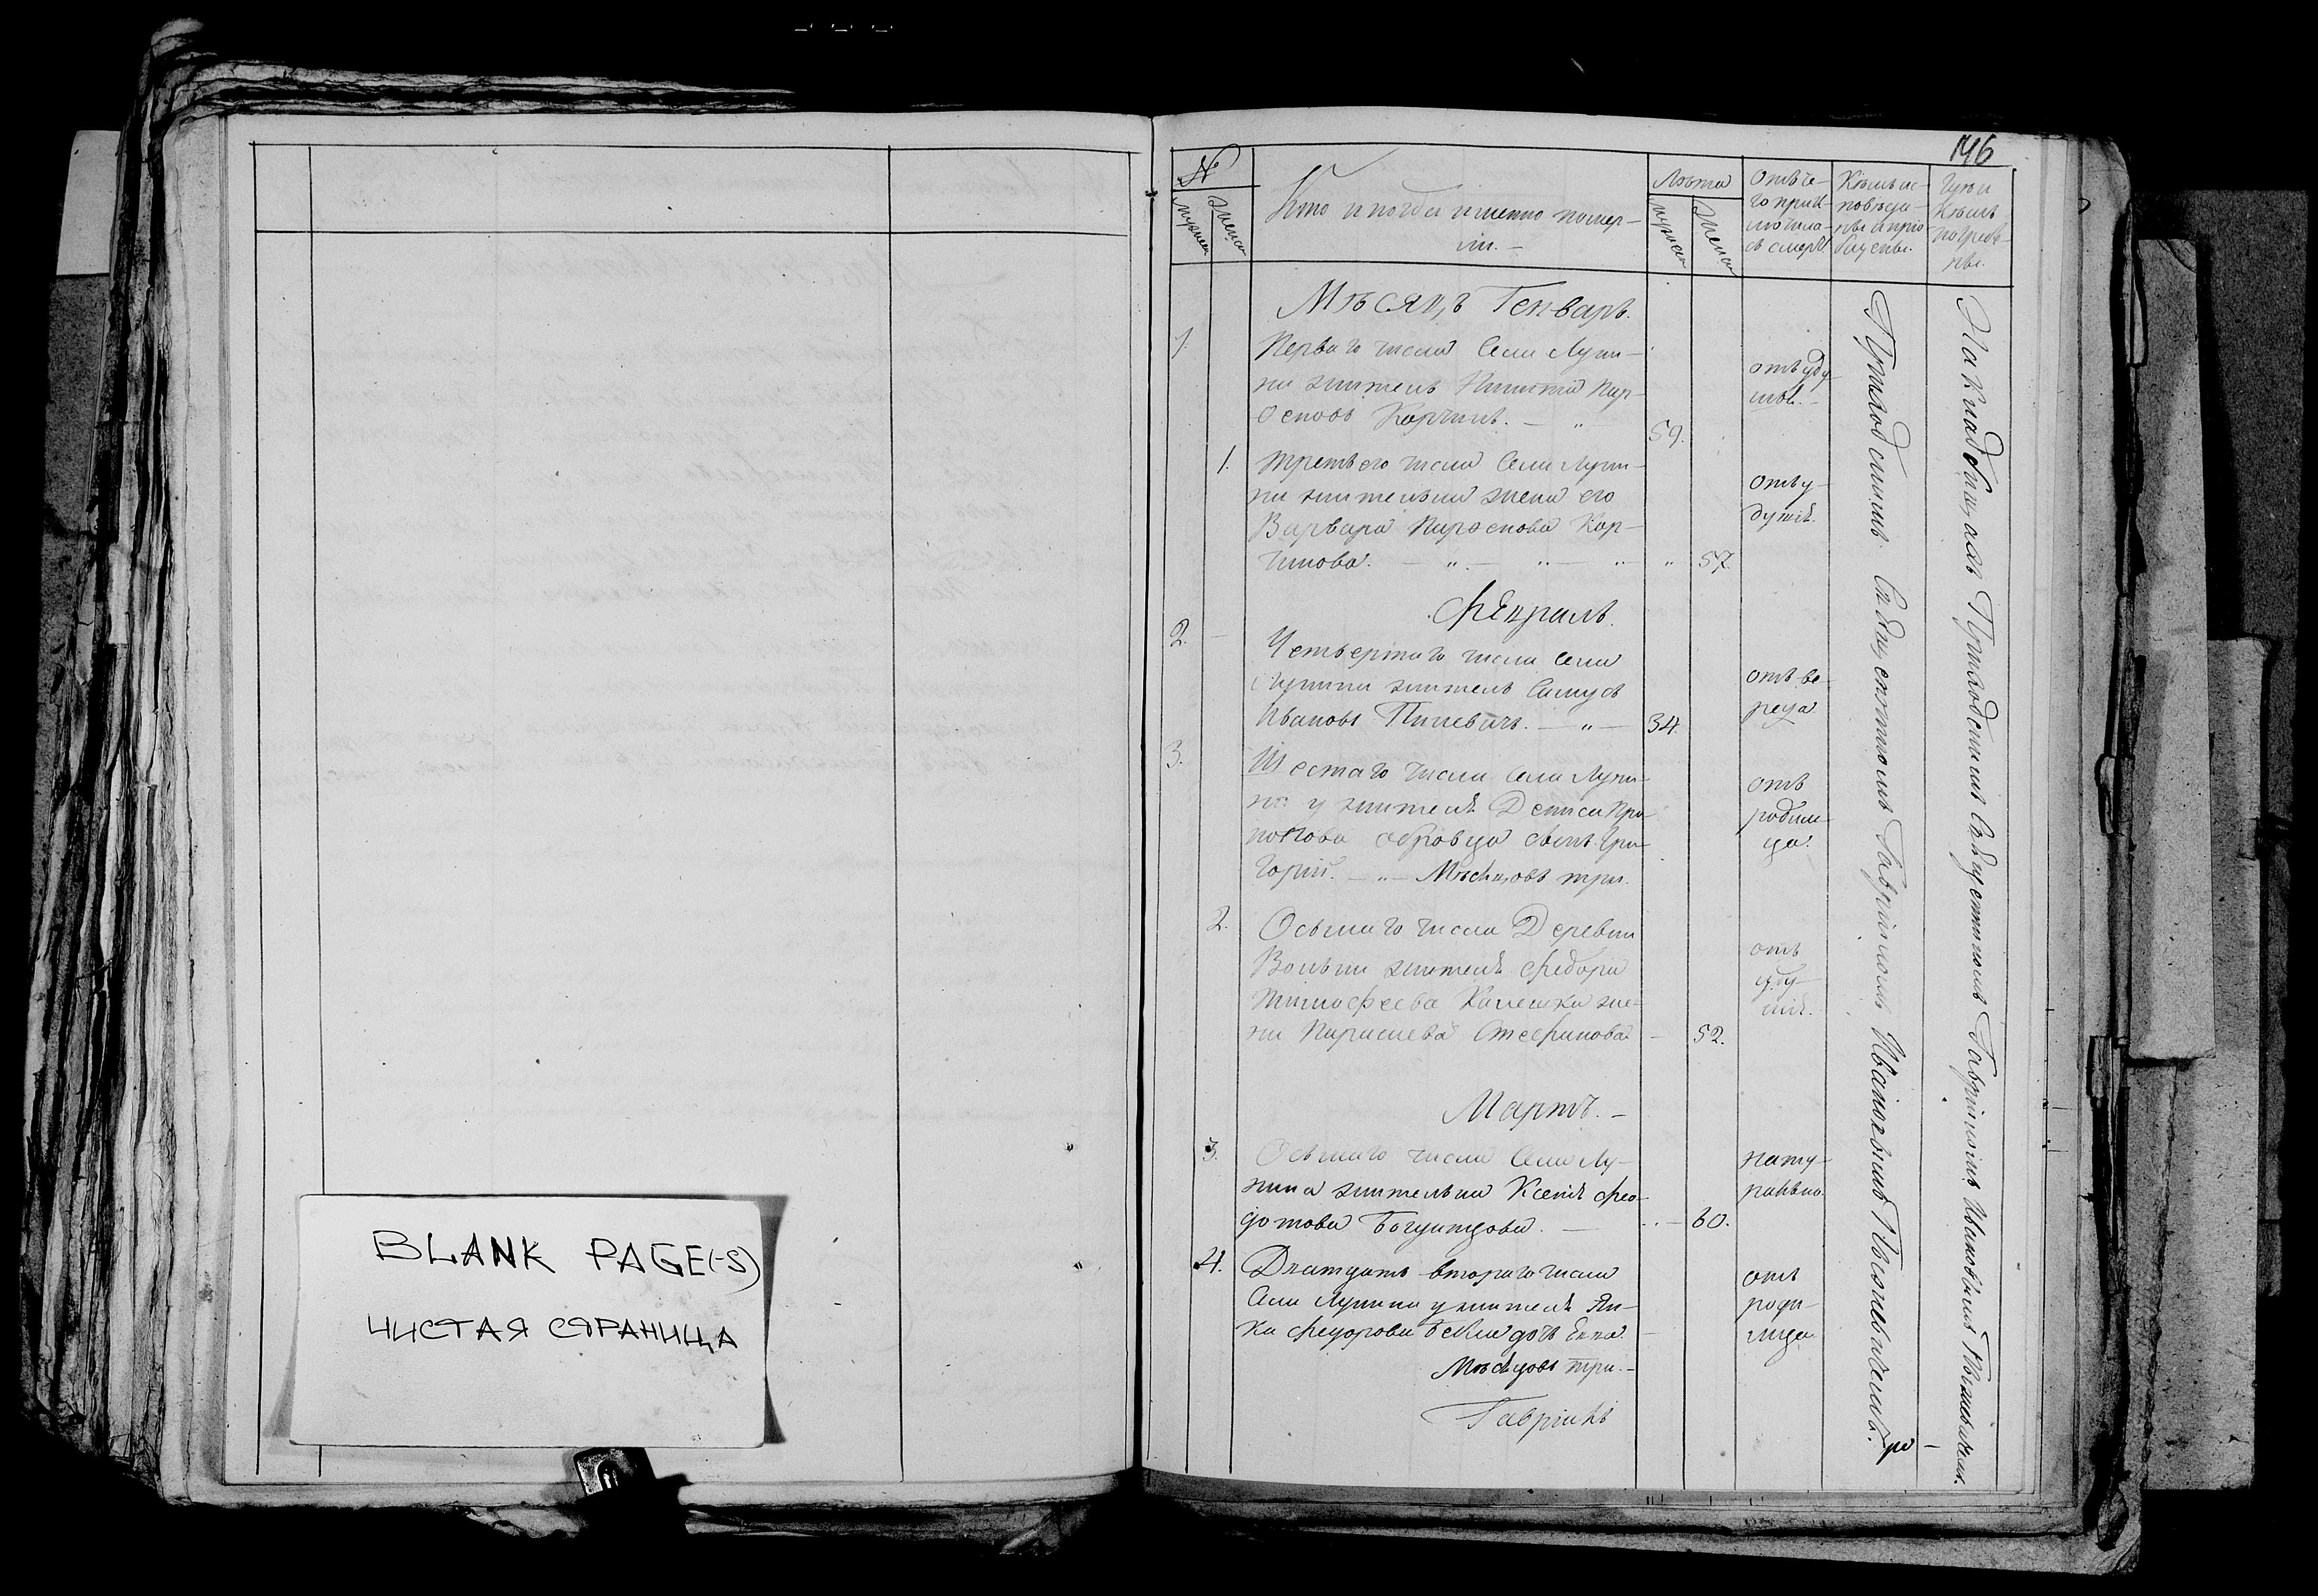 BLANK PAGE(-S)
ЧИСТАЯ СТРАНИЦА
146
№
мужеск
женск
Кто и когда именно помер-
ли. -
Лѣта
мужеск
женск
Отъ че-
го приклю-
чила-
сь смерть
Кѣмъ ис-
повѣда-
ны и прио-
бщены.
Гдѣ и
Кѣмъ
погребе-
ны.
Мѣсяцъ Генварь.
1.
Перваго числа Села Луни-
на житель Никита Кар-
повъ Корчикъ. - „
59.
отъ уду-
шья. -
1.
Третьего числа Села Луни-
на жительки жена его
Варвара Кор-
чикова. - „ - „ - „
57.
отъ у-
душья.
Февраль.
2.
Четвертаго числа Села
Лунина житель Самусь
Ивановъ Пилевичъ. - „ -
34.
отъ ве-
реда.
3.
Шестаго числа Села Луни-
на у жителя Дениса Про-
копова сынъ Гри-
горій. - „ - Мѣсяцовъ три.
отъ
родим-
ца.
2.
Осьмаго числа Деревни
жителя Федора
Тимофеева жe-
на Стефанова
52.
отъ
уду-
шья.
Мартъ. -
3.
Осьмаго числа Села Лу-
нина жителька Ксенія Фео-
дотова Богданцова. -
60.
нату-
рально.
4.
Дватцать втораго числа
Села Лунина у жителя Ян-
ки Федорова дочь
Мѣсяцовъ три. -
отъ
роди-
мца.
Гавріилъ
Приходскимъ Священникомъ Гавріиломъ Ивановымъ
На Кладбищахъ Приходскимъ Священникомъ Гавріиломъ Ивановымъ